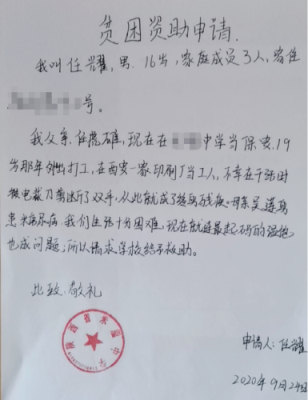 贫困资助申请
我叫任耀,男,16岁,家庭成员3人,家住
号。
我父亲任虎雄,现在在 中学当保安,19
岁那年外出打工,在西安一家印刷厂当工人,不幸在干活时
被电裁刀剪断了双手,从此就成了
患 病,我们生活十分困难,现在就连最起码的温饱
也成问题,所以请求学校给予救助。
此致 敬礼
申请人:任耀
2020年9月24日